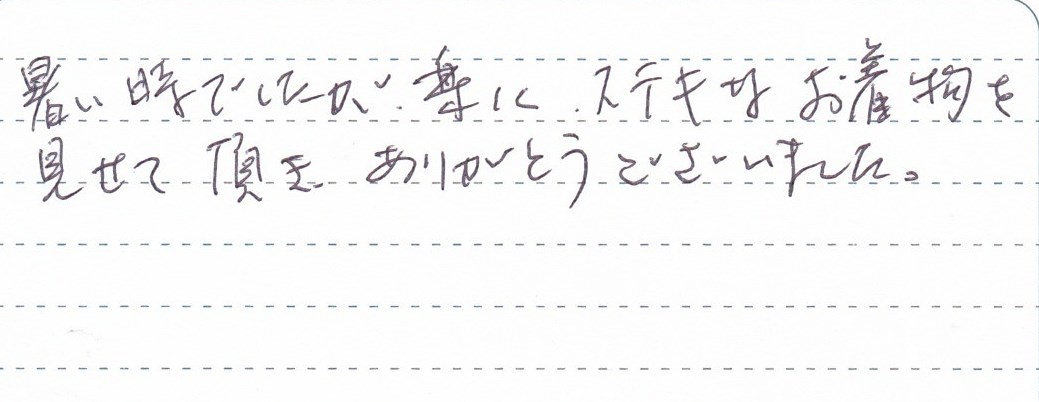 暑い時でしたが、楽に、ステキなお着物を
見せて頂き、ありがとうございました。